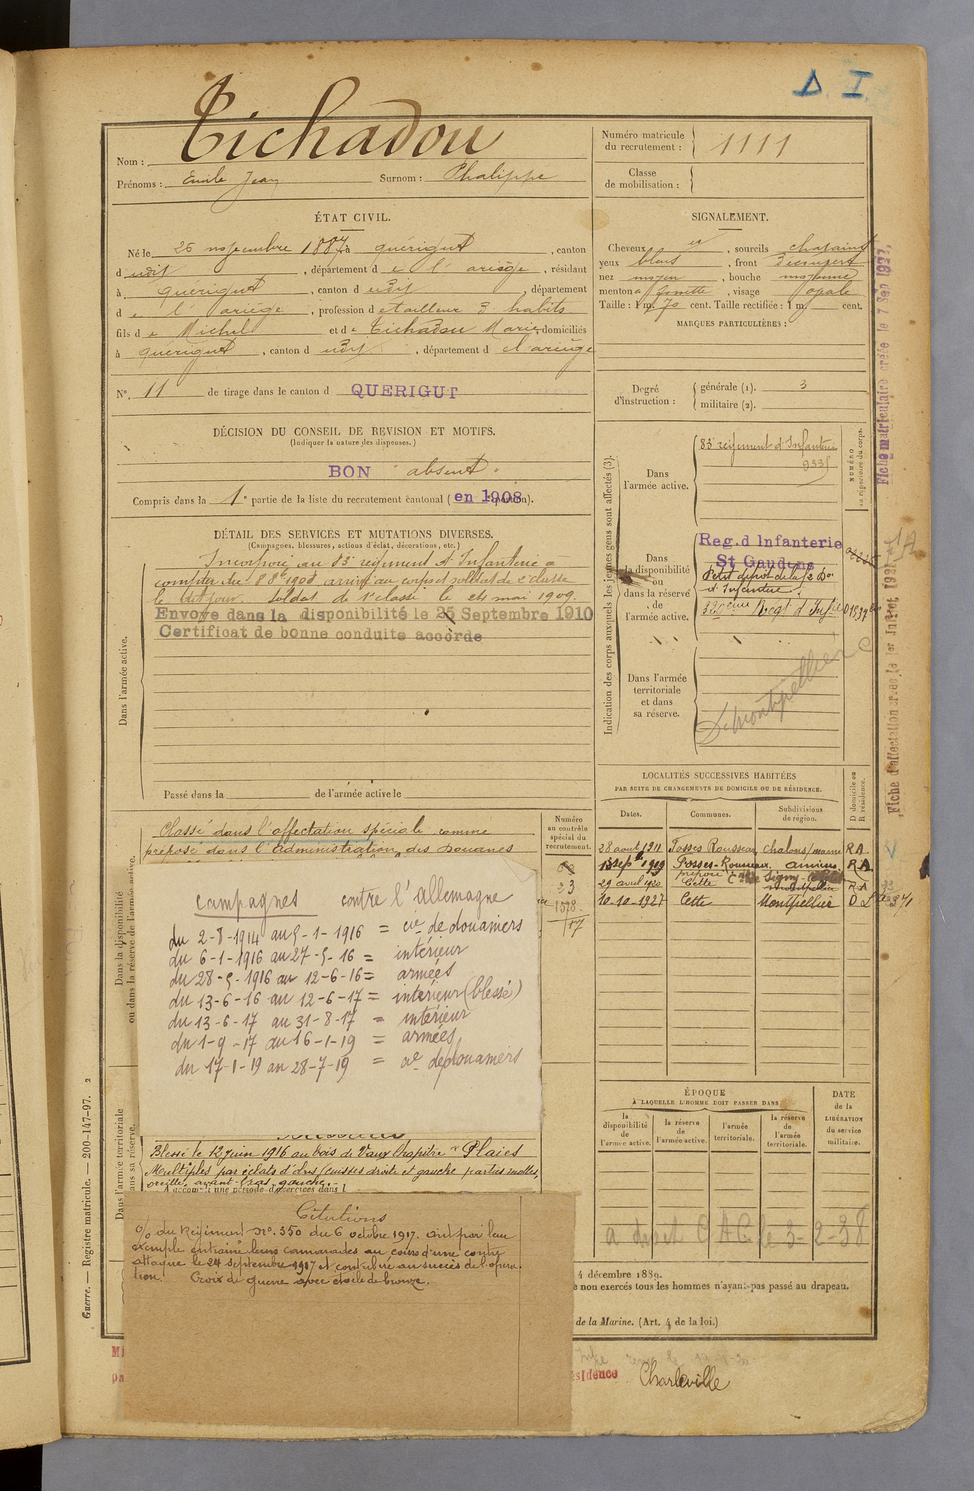 D. I.
Nom : Tichadou
Prénoms : Emile Jean Surnom : Phalippe
Numéro matricule du recrutement : 1111
Classe de mobilisation :
ÉTAT CIVIL.
Né le 25 novembre 1887 à quérigut, canton
d udit, département d e l'ariège, résidant
à quérigut, canton d udit, département
d e l'ariège, profession d e tailleur d habits
fils d e Michel et d e Tichadou Marie, domiciliés
à quérigut, canton d udit, département d e l'ariège
N° 11 de tirage dans le canton d QUERIGUT
DÉCISION DU CONSEIL DE REVISION ET MOTIFS.
(Indiquer la nature des dispenses.)
BON absent.
Compris dans la 1e partie de la liste du recrutement cantonal (en 1908).
DÉTAIL DES SERVICES ET MUTATIONS DIVERSES.
(Campagnes, blessures, actions d'éclat, décorations, etc.)
Incorporé au 83e régiment d'Infanterie à
compter du 8 8bre 1908 arrivé au corps et soldat de 2e classe
le dit jour. Soldat de 1e classe le mai 1909.
Envoyé dans la disponibilité le 25 Septembre 1910
Certificat de bonne conduite accordé
Dans l'armée active.
Passé dans la de l'armée active le
Classé dans l'affectation spéciale comme
préposé dans l'administration des Douanes
Dans la disponibilité
ou dans la réserve de l'armée active.
campagnes contre l'Allemagne
du 2-8-1914 au 5-1-1916 = cie de douaniers
du 6-1-1916 au 27-5-16 = intérieur
du 28-5-1916 au 12-6-16 = armées
du 13-6-16 au 12-6-17 = intérieur (blessé)
du 13-6-17 au 31-8-17 = intérieur
du 1-9-17 au 16-1-19 = armées
du 17-1-19 au 28-7-19 = cie de douaniers
Dans l'armée territoriale
et dans sa réserve.
Blessé le 12 juin 1916 au bois de Vaux Chapitre "Plaies
Multiples par éclats d'obus (cuisses droite et gauche parties molles,
oreille, avant-bras gauche.
A accompli une période d'exercices dans l
Citations
O/ du Régiment No. 350 du 6 octobre 1917. Ont par leur
exemple entrainé leurs camarades au cours d'une contre
attaque le 24 septembre 1917 et contribué au succès de l'opéra
tion. Croix de guerre avec étoile de bronze.
Guerre. — Registre matricule. — 200-147-97. 2
SIGNALEMENT.
Cheveux , sourcils chatains
yeux bleus, front découvert
nez moyen, bouche moyenne
menton à fossette, visage ovale
Taille : 1 m. 70 cent. Taille rectifiée : 1 m. cent.
MARQUES PARTICULIÈRES :
Degré d'instruction :
générale (1). 3
militaire (2).
Indication des corps auxquels les jeunes gens sont affectés (3).
NUMÉRO au répertoire du corps.
Dans l'armée active.
83e régiment d'Infanterie
Dans la disponibilité ou dans la réserve de l'armée active.
Reg. d Infanterie
St Gaudens
Petit dépôt de la
d'Infanterie
Dans l'armée territoriale et dans sa réserve.
Montpellier
LOCALITÉS SUCCESSIVES HABITÉES
PAR SUITE DE CHANGEMENTS DE DOMICILE OU DE RÉSIDENCE.
Numéro au contrôle spécial du recrutement.
Dates. Communes. Subdivisions de région. D domicile ou R résidence.
28 aout 1911 Fosses Rousseau chalons/marne R A
1 sept 1919 Fosses-Rousseau amiens R A
29 avril 1920 Cette montpellier R A
10-10-1927 Cette Montpellier D
ÉPOQUE
À LAQUELLE L'HOMME DOIT PASSER DANS
la disponibilité de l'armée active.
la réserve de l'armée active.
l'armée territoriale.
la réserve de l'armée territoriale.
DATE de la LIBÉRATION du service militaire.
4 décembre 1889.
e non exercés tous les hommes n'ayant pas passé au drapeau.
de la Marine. (Art. 4 de la loi.)
sidence
Charleville
Fiche matriculaire créée le 7 Sep 1927,
Fiche d'affectation créée le 1er Juillet 1921